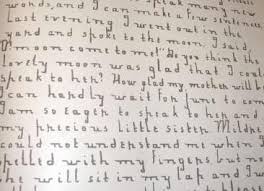 words, and I can make a few sentences.
Last evening I went out in the
yard and spoke to the moon. I said,
"O! moon come to me!" Do you think the
lovely moon was glad that I could
speak to her? How glad my mother will be
I can hardly wait for June to come
I am so eager to speak to her and
my precious little sister. Mildred
could not understand me when I
spelled with my fingers, but now
she will sit in my lap and I